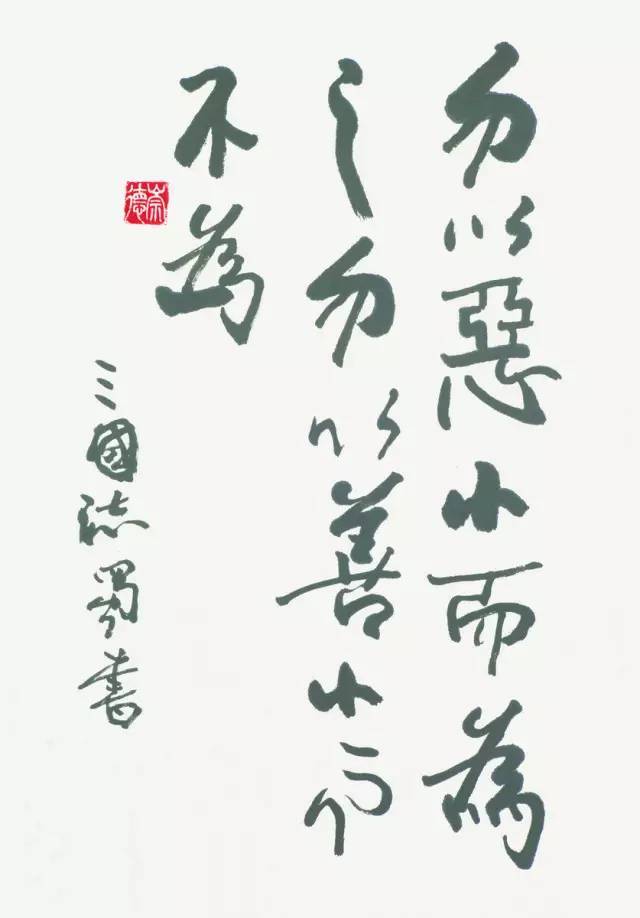 勿以惡小而為
之勿以善小而
不為
三國志蜀書
崇德